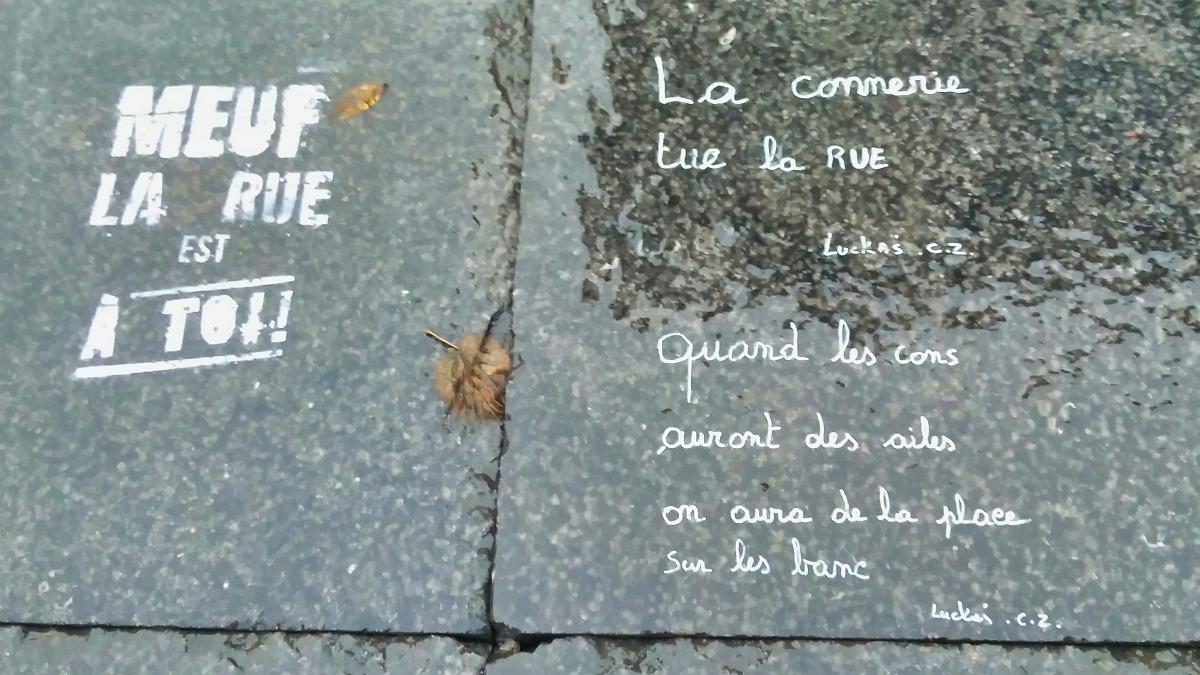 MEUF
LA RUE
EST
À TOI!
La connerie
tue la RUE
Luckas . C.Z.
Quand les cons
auront des ailes
on aura de la place
sur les banc
Luckas . C.Z.